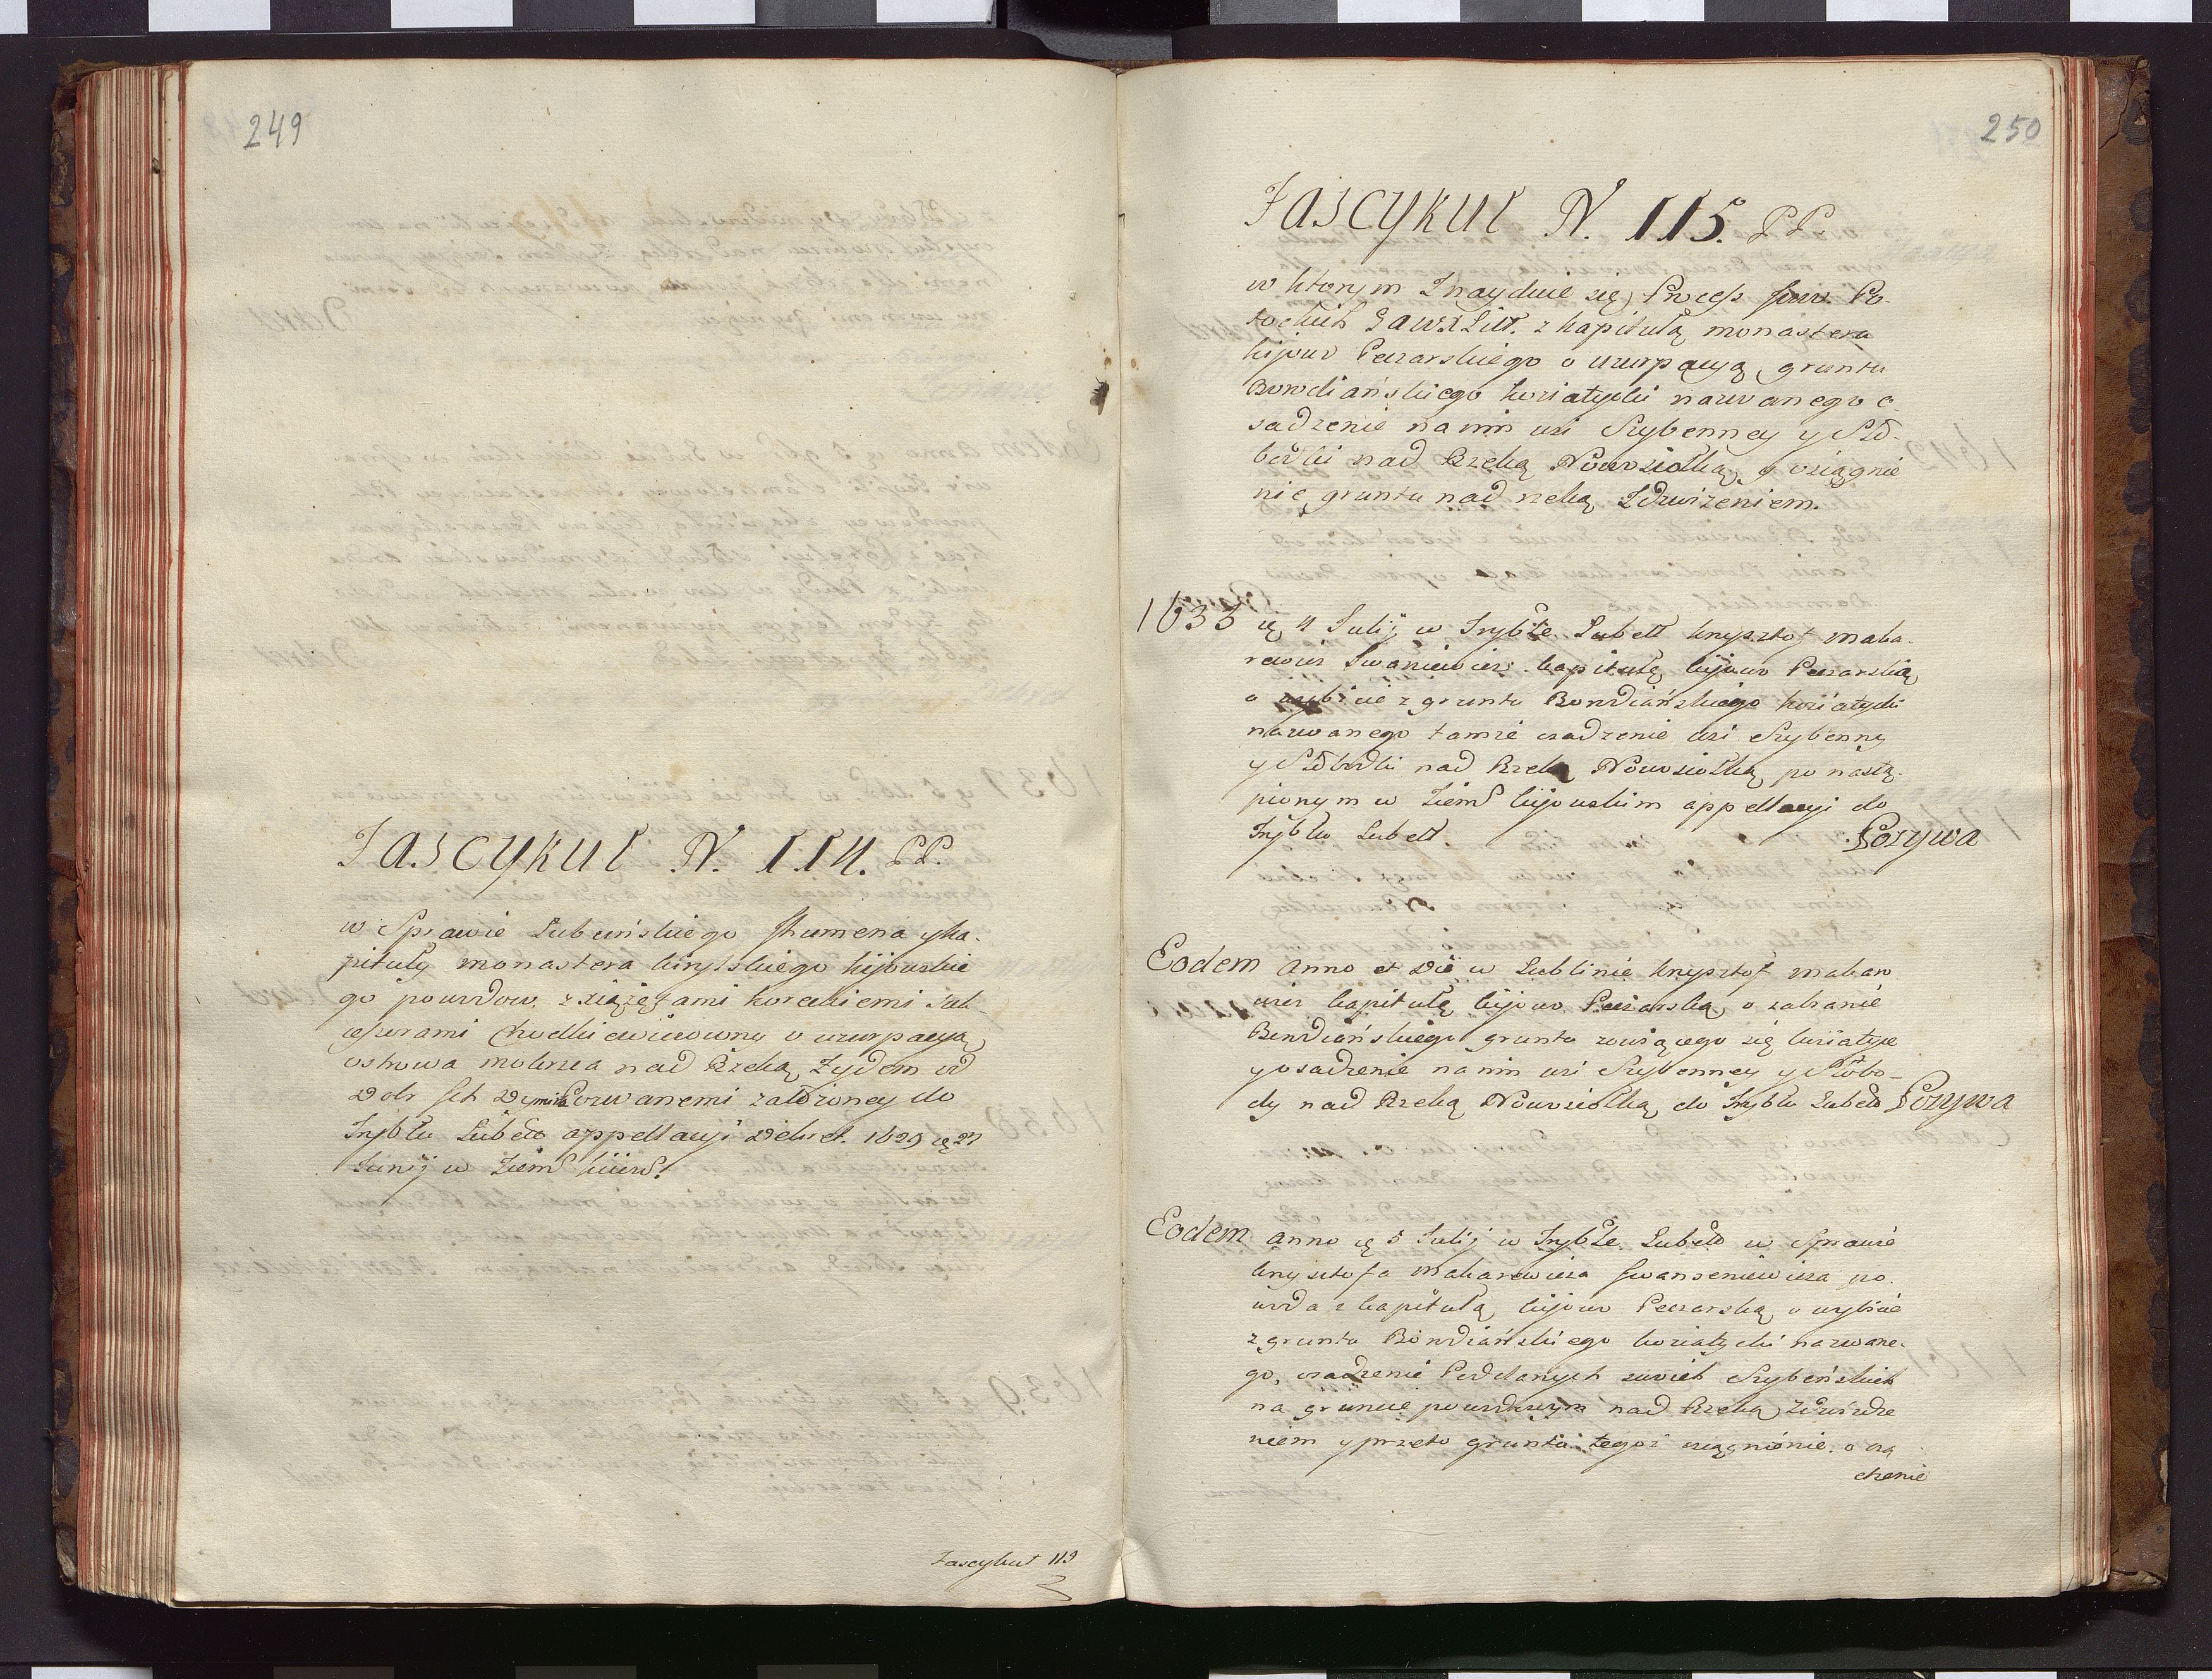 249
Fascykuł N. 114. PP.
w Sprawie Lubeńskiego Jhumena y Ka-
pituły monastera Kirylskiego Kijowskie
go powodow. z xiążętami Koreckiemi
Chodkiewiczowną o uzurpacyą
ostrowa nad Rzeką Żydem od
Dobr założoney do
Trybłu Lubełł appellacyi Dekret. 1629 ię 27
Junij w Ziem Kiiow.
Fascykuł 113
250
Fascykuł N. 115. PP.
w ktorym Znayduie się Process Jww. Po-
tockich z kapitułą monastera
kijow Peczarskiego o uzurpacyą gruntu
nazwanego o
sadzenie na nim wsi Szybenney y Sło-
bodki nad Rzeką Nowosiołką, y osiągnie
nie gruntu nad rzeką Zdwiżeniem.
1633 ię 4 Julij w Tryble Lubell Krysztof Maka-
rewicz Iwaniewicz kapitułę kijow Peczarską
o wybicie z gruntu
nazwanego tamże osadzenie wsi Szybenny
y Słobodki nad Rzeką Nowosiołką po nastą-
pionym w Ziem kijowskim appellacyi do
Tryblu Lubell. Pozywa
Eodem anno et Die w Lublinie Krysztof Makare
wicz kapitułę kijow Peczarską o zabranie
gruntu zwiącego się
y osadzenie na nim wsi Szybenney y Słobo-
dy nad Rzeką Nowosiołką do Tryblu Lubell Pozywa
Eodem anno ię 5 Julij w Tryble Lubell w Sprawie
Krysztofa Makarewicza po-
woda z kapitułą kijow Peczarską o wybicie
z gruntu nazwane-
go, osadzenie Poddanych swoich Szybeńskich
na gruncie powodowym nad Rzeką Zdwiże
niem y przeto gruntu tegoż osiągnienie. o
czenie